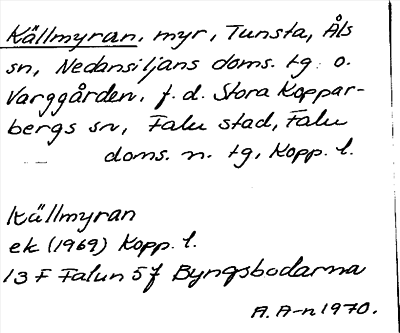 Källmyran, myr, Tunsta, Åls
sn, Nedansiljans doms. tg. o.
Varggården, f. d. Stora Koppar-
bergs sn, Falu stad, Falu
doms. n. tg, Kopp. l.
Källmyran
ek (1969) Kopp. l.
13 F Falun 5 f Byngsbodarna
A. A-n 1970.